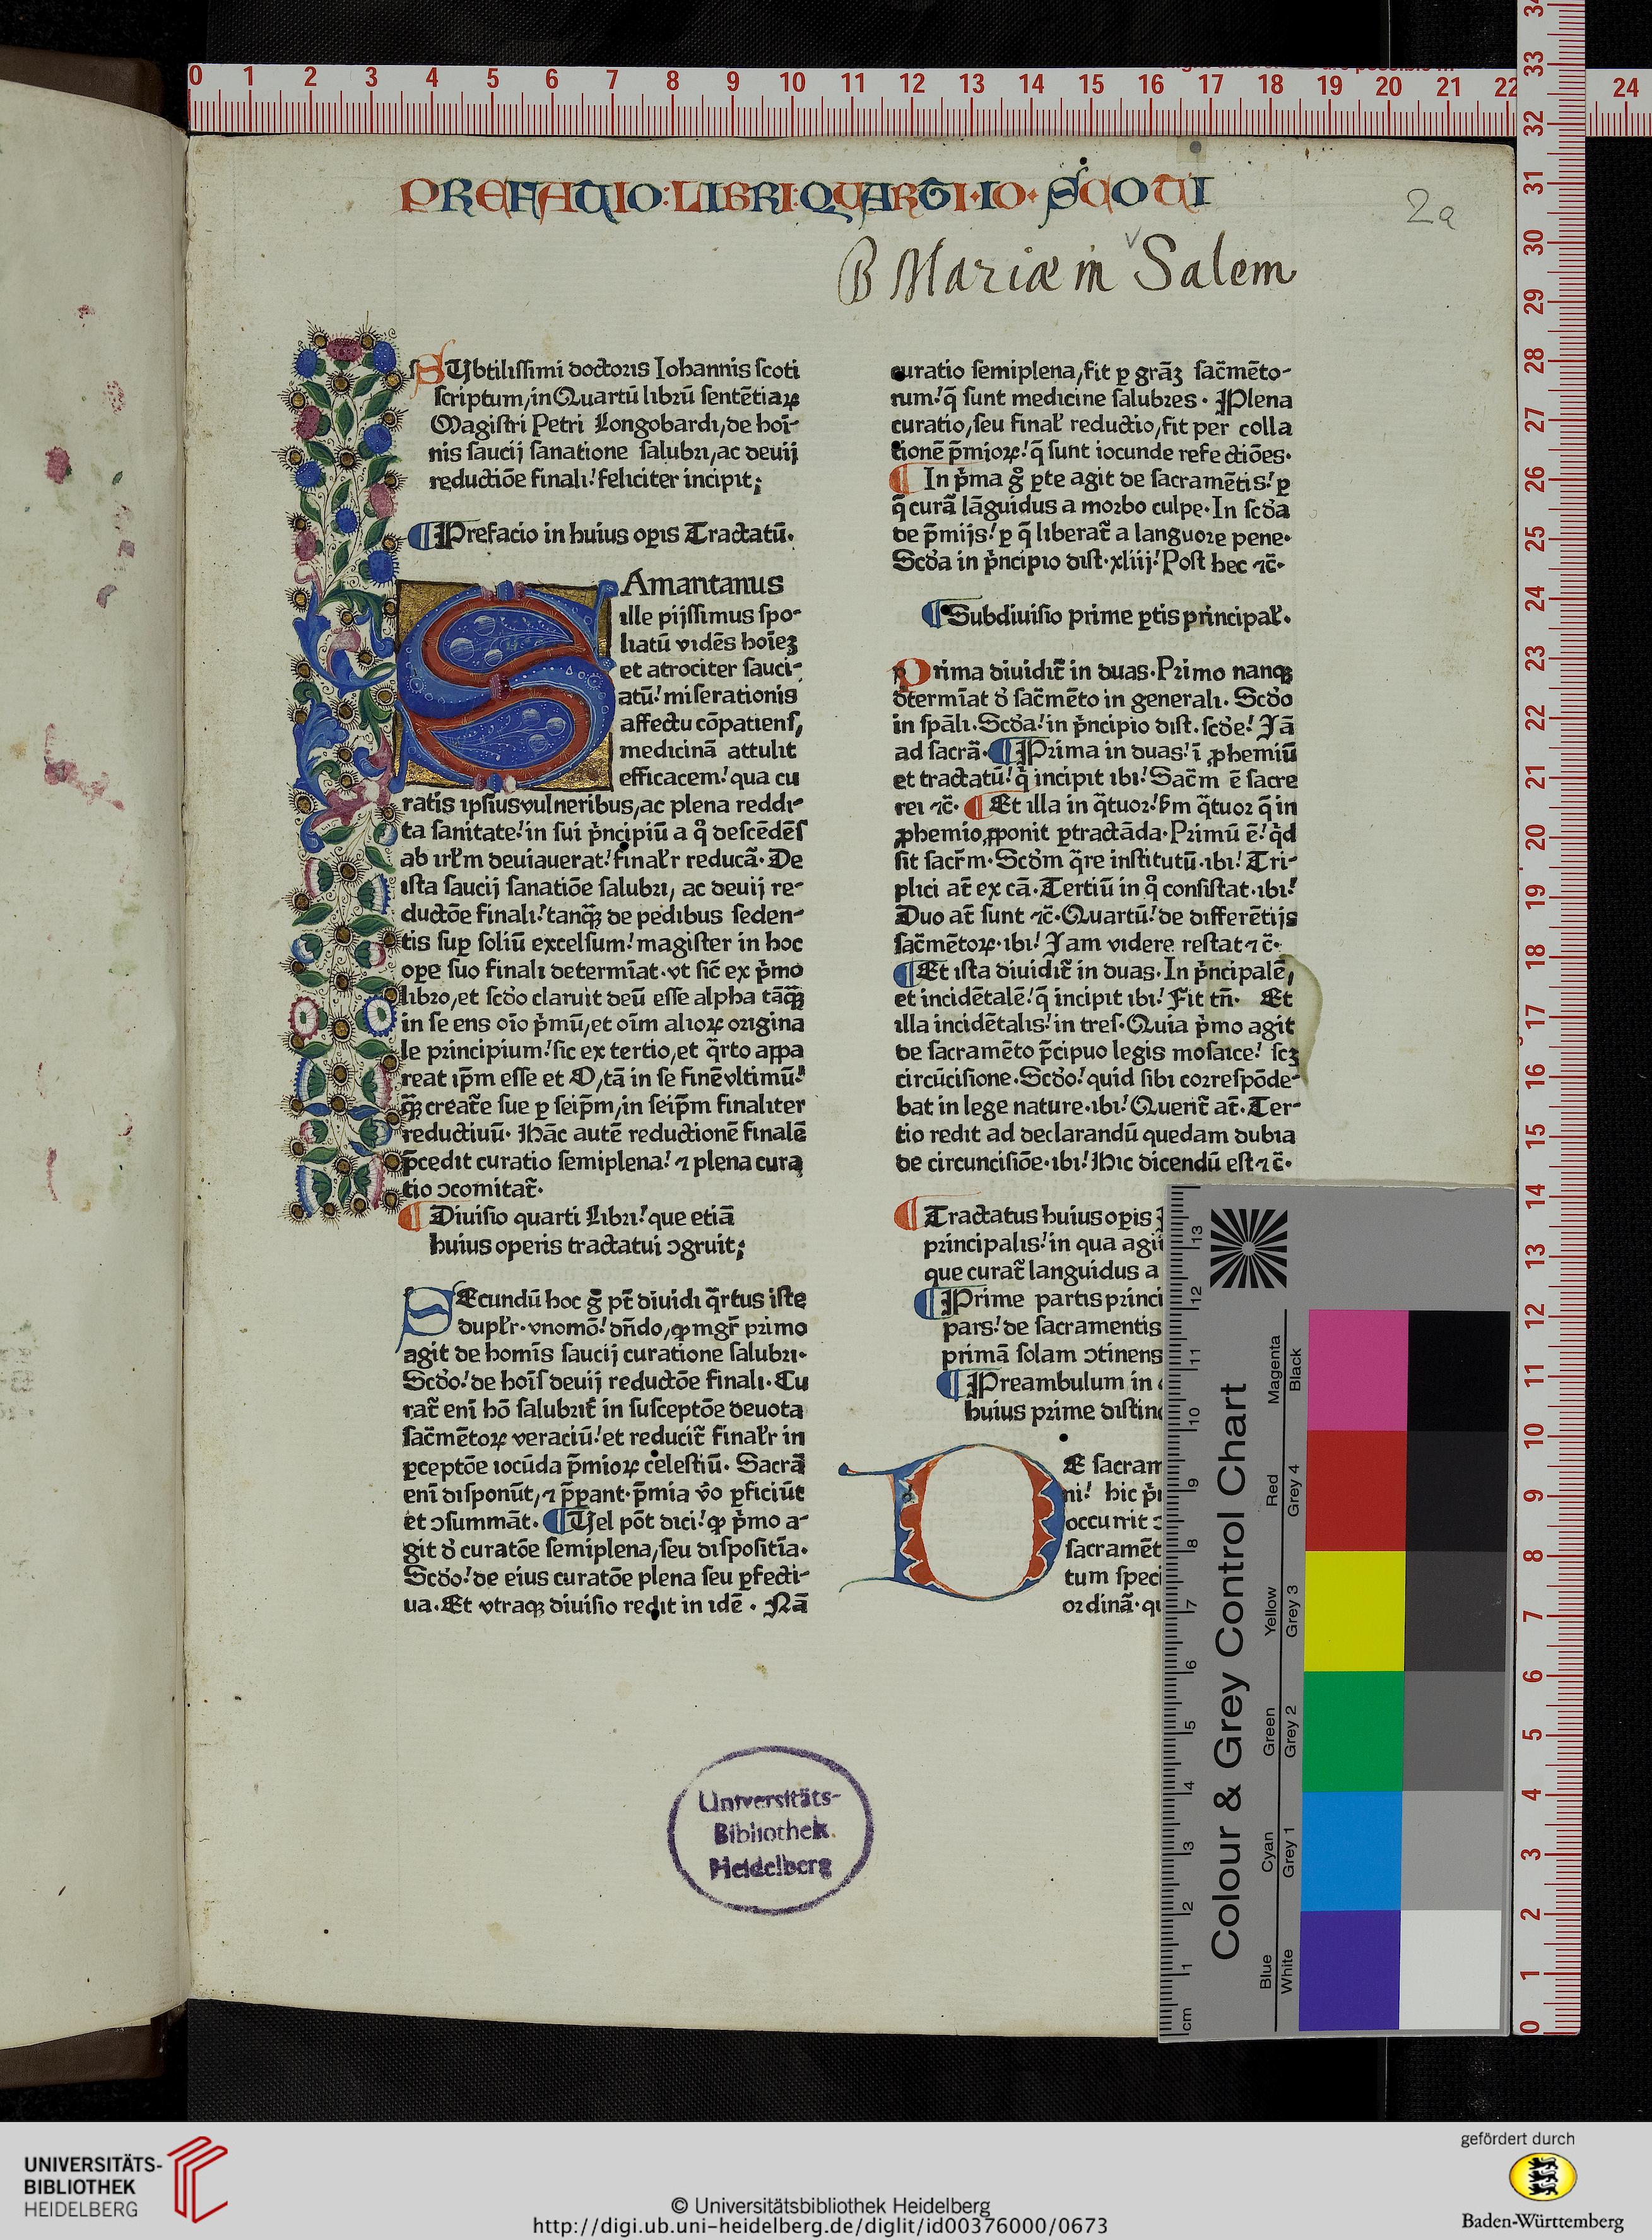 PREFATIO:LIBRI:QUARTI·IO·SCOTI
2a
B Mariæ in Salem
SUbtilissimi doctoris Iohannis scoti
scriptum/in Quartū librū sentētiaꝝ
Magistri Petri Longobardi/de hoī-
nis saucij sanatione salubri/ac deuij
reductiōe finali! feliciter incipit;
¶Prefacio in huius oꝑis Tractatū.
SAmaritanus
ille pijssimus spo-
liatū vidēs hoīeꝫ
et atrociter sauci-
atū! miserationis
affectu cōpatiens,
medicinā attulit
efficacem! qua cu
ratis ipsiusvulneribus/ac plena reddi-
ta sanitate! in sui pͥncipiū a qͦ descēdēs
ab irl̄m deuiauerat! finalr̄ reducā. De
ista saucij sanatiōe salubri/ ac deuij re-
ductōe finali! tanqꝫ̄ de pedibus seden-
tis suꝑ soliū excelsum! magister in hoc
ope suo finali determīat. vt sic̄ ex pͥmo
libro/et scd̓o claruit deū esse alpha tāqꝫ̄
in se ens oīo pͥmū/et oīm alioꝝ origina
le principium! sic ex tertio/et qͣrto appa
reat ip̄m esse et O/tā in se finē vltimū!
qꝫ̄ creat̄e sue ꝑ seip̄m/in seip̄m finaliter
reductiuū. Hāc autē reductionē finalē
p̄cedit curatio semiplena! ⁊ plena cura
tio ↄcomitat̄.
¶ Diuisio quarti Libri! que etiā
huius operis tractatui ↄgruit;
SEcundū hoc gͦ pt̄ diuidi qͣrtus iste
duplr̄. vnomō! dn̄do/ꝙ mgr̄ primo
agit de homīs saucij curatione salubri.
Scd̓o! de hoīs deuij reductōe finali. Cu
rat̄ enī hō salubrit̄ in susceptōe deuota
sac̄mētoꝝ veraciū! et reducit̄ finalr̄ in
ꝑceptōe iocūda p̄mioꝝ celestiū. Sacrā
enī disponūt/⁊ p̄ꝑant. p̄mia v̓o ꝑficiūt
et ↄsummāt. ¶Uel pōt dici! ꝙ pͥmo a-
git d̓ curatōe semiplena/seu dispositīa.
Scd̓o! de eius curatōe plena seu ꝑfecti-
ua. Et vtraqꝫ diuisio redit in idē. Nā
curatio semiplena/fit ꝑ grāꝫ sac̄mēto-
rum! q̄ sunt medicine salubres. Plena
curatio/seu final̄ reductio/fit per colla
tionē p̄mioꝝ! q̄ sunt iocunde refectiōes.
¶ In pͥma gͦ ꝑte agit de sacramētis! ꝑ
q̄ curā lāguidus a morbo culpe. In scd̓a
de p̄mijs! ꝑ q̄ liberat̄ a languore pene.
Scd̓a in pͥncipio dist. xliij! Post hec ⁊c̄.
¶Subdiuisio prime ꝑtis principal̄.
Prima diuidit̄ in duas. Primo nanqꝫ
d̓termīat d̓ sac̄mēto in generali. Scd̓o
in spāli. Scd̓a! in pͥncipio dist. scd̓e! Jā
ad sacrā. ¶Prima in duas! ī ꝓhemiū
et tractatū! q̄ incipit ibi! Sac̄m ē sacre
rei ⁊c̄. ¶ Et illa in qͣtuor! ẜm qͣtuor q̄ in
ꝓhemio/ꝓponit ꝑtractāda. Primū ē! qͥd
sit sacr̄m. Scd̓m qͣre institutū. ibi! Tri-
plici at̄ ex cā. Tertiū in qͦ consistat. ibi!
Duo at̄ sunt ⁊c̄. Quartū! de differētijs
sac̄mētoꝝ. ibi! Jam videre restat ⁊ c̄.
¶Et ista diuidit̄ in duas. In pͥncipalē/
et incidētalē! q̄ incipit ibi! Fit tn̄. Et
illa incidētalis! in tres. Quia pͥmo agit
de sacramēto p̄cipuo legis mosaice! scꝫ
circūcisione. Scd̓o! quid sibi correspōde-
bat in lege nature. ibi! Querit̄ at̄. Ter-
tio redit ad declarandū quedam dubia
de circuncisiōe. ibi! Hic dicendū est ⁊ c̄.
¶ Tractatus huius oꝑis
principalis! in qua agi
que curat̄ languidus a
¶Prime partis princi
pars! de sacramentis
primā solam ↄtinens
¶Preambulum in
huius prime distin
DE sacram
ni! hic pͥ
occurrit
sacramēt
tum speci
ordinā. q
Universitäts-
Bibliothek
Heidelberg
Colour & Grey Control Chart
Blue Cyan Green Yellow Red Magenta
White Grey 1 Grey 2 Grey 3 Grey 4 Black
cm 1 2 3 4 5 6 7 8 9 10 11 12 13
0 1 2 3 4 5 6 7 8 9 10 11 12 13 14 15 16 17 18 19 20 21 22 24
0 1 2 3 4 5 6 7 8 9 10 11 12 13 14 15 16 17 18 19 20 21 22 23 24 25 26 27 28 29 30 31 32 33 34
UNIVERSITÄTS-
BIBLIOTHEK
HEIDELBERG
© Universitätsbibliothek Heidelberg
http://digi.ub.uni-heidelberg.de/diglit/id00376000/0673
gefördert durch
Baden-Württemberg